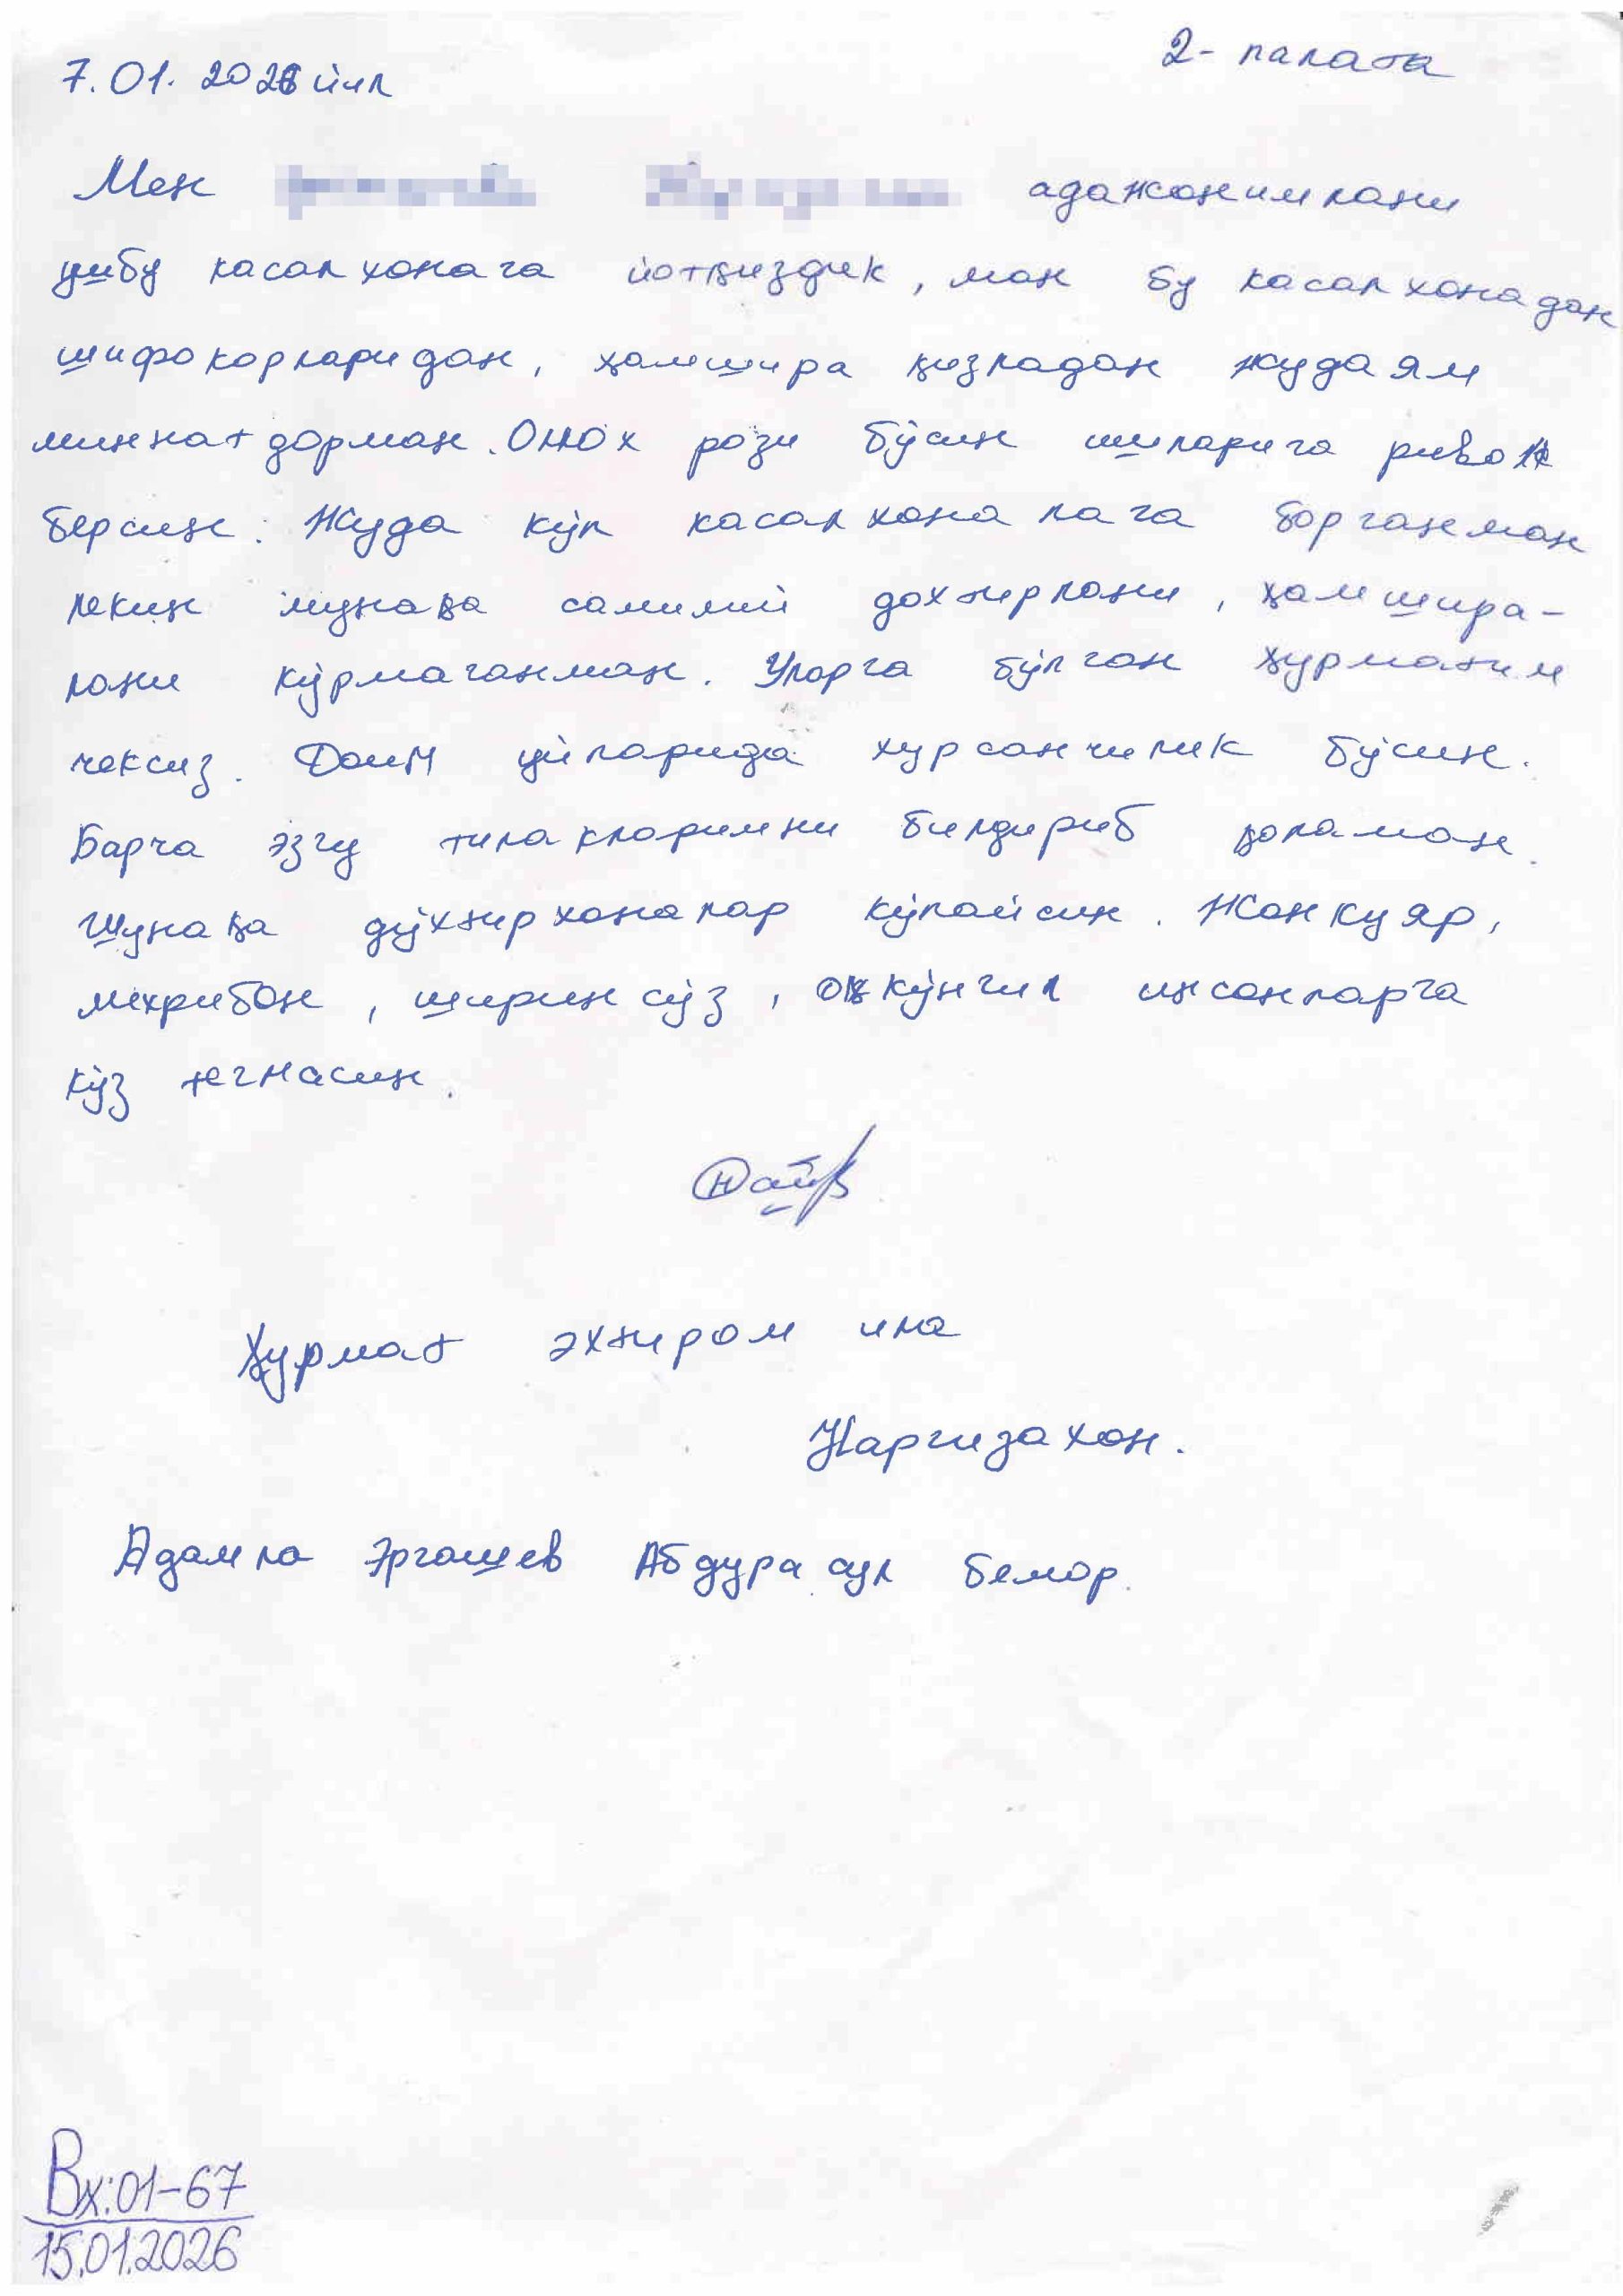 2- палата
7.01.2026 йил
Мен адажонимлани
ушбу касалхонага йотқиздик, ман бу касалхонадан
шифокорларидан, ҳамшира қизладан жудаям
миннатдорман. Оллох рози бўсин ишларига ривож
берсин. Жуда кўп касалхоналага борганман
лекин мунақа самимий дохтирлани, ҳамшира-
лани кўрмаганман. Уларга бўлган ҳурматим
чексиз. Доим уйларида хурсанчилик бўсин.
Барча эзгу тилакларимни билдириб қоламан.
Шунақа дўхтирхоналар кўпайсин. Жонкуяр,
мехрибон, ширинсўз, оқкўнгил инсонларга
кўз тегмасин.
Ҳурмат эхтиром ила
Наргизахон.
Адамла Эргашев Абдурасул бемор.
Вх:01-67
15.01.2026